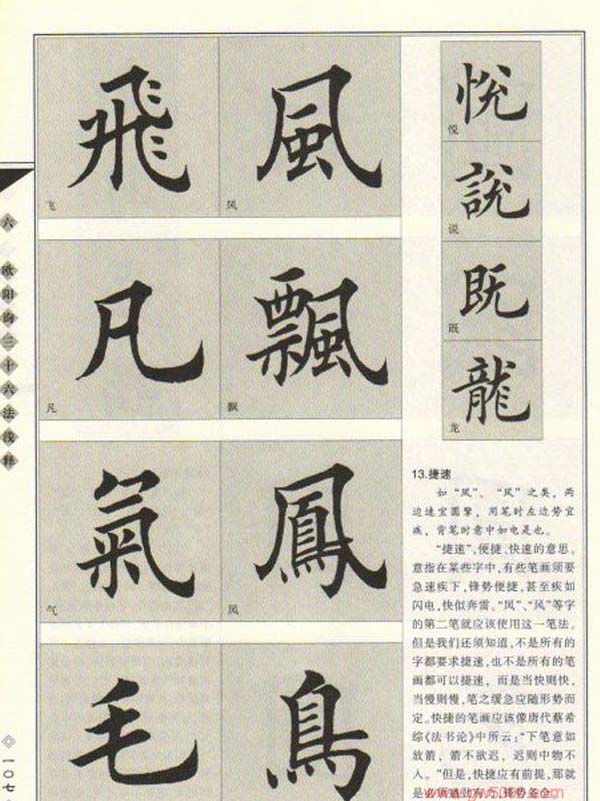 飛 風
飞 风
凡 飄
凡 飘
氣 鳳
气 凤
毛 鳥
悦
悦
說
说
既
既
龍
龙
六 欧阳询三十六法浅释
一〇七
13.捷速
如“凤”、“风”之类，两
边速宜圆擎，用笔时左边势宜
疾，背笔时意中如电是也。
“捷速”，便捷、快速的意思。
意指在某些字中，有些笔画须要
急速疾下，锋势便捷，甚至疾如
闪电，快似奔雷。“凤”、“风”等字
的第二笔就应该使用这一笔法。
但是我们还须知道，不是所有的
字都要求捷速，也不是所有的笔
画都可以捷速，而是当快则快，
当慢则慢，笔之缓急应随形势而
定。快捷的笔画应该像唐代蔡希
综《法书论》中所云：“下笔意如
放箭，箭不欲迟，迟则中物不
人。”但是，快捷应有前提，那就
是必须遒劲有力，锋势备全